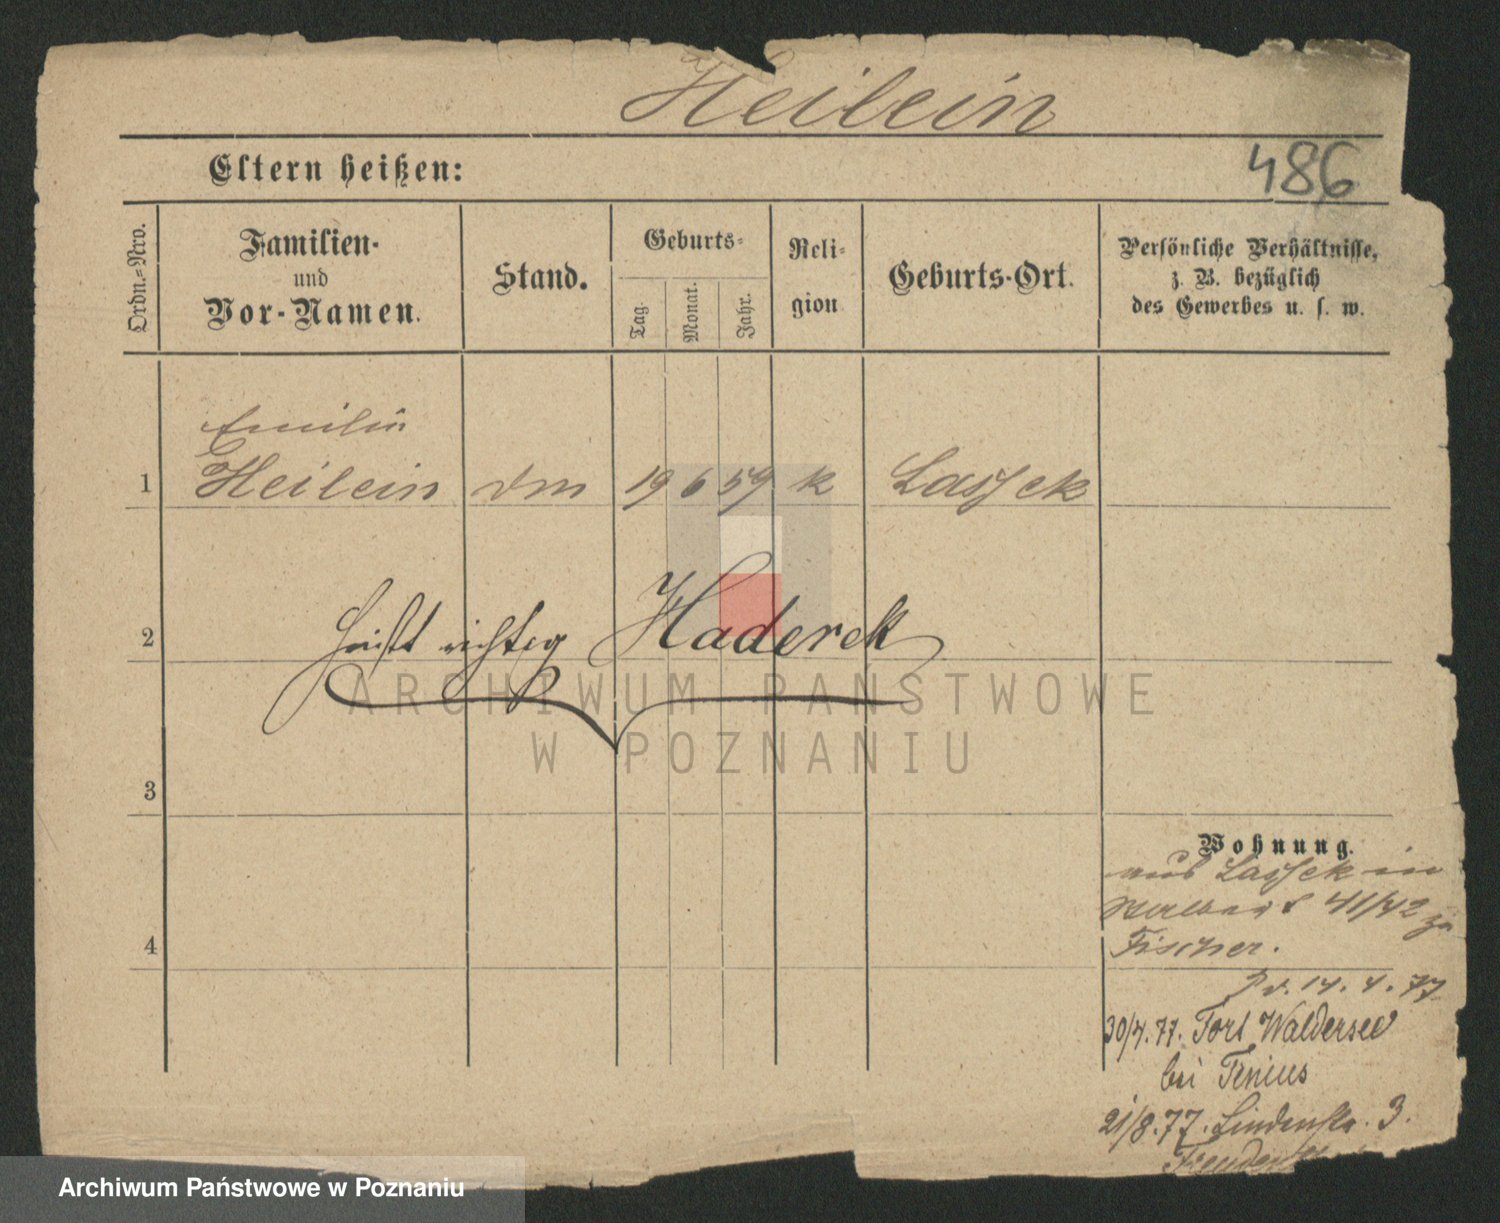 Heilein
Eltern heißen:
486
Ordn.=Nro.
Familien-
und
Vor-Namen.
Stand.
Geburts=
Tag.
Monat.
Jahr.
Reli-
gion
Geburts-Ort.
Persönliche Verhältnisse,
z. B. bezüglich
des Gewerbes u. s. w.
Emilie
1 Heilein dm 19 6 59 k Lassek
2 heißt richtig Haderek
ARCHIWUM PAŃSTWOWE
W POZNANIU
3
Wohnung.
aus Lassek in
41/42 zu
4 Fischer.
14. 4. 77
30/4. 77. Fort Waldersee
bei Tenius
21/8. 77. Lindenstr. 3.
Archiwum Państwowe w Poznaniu